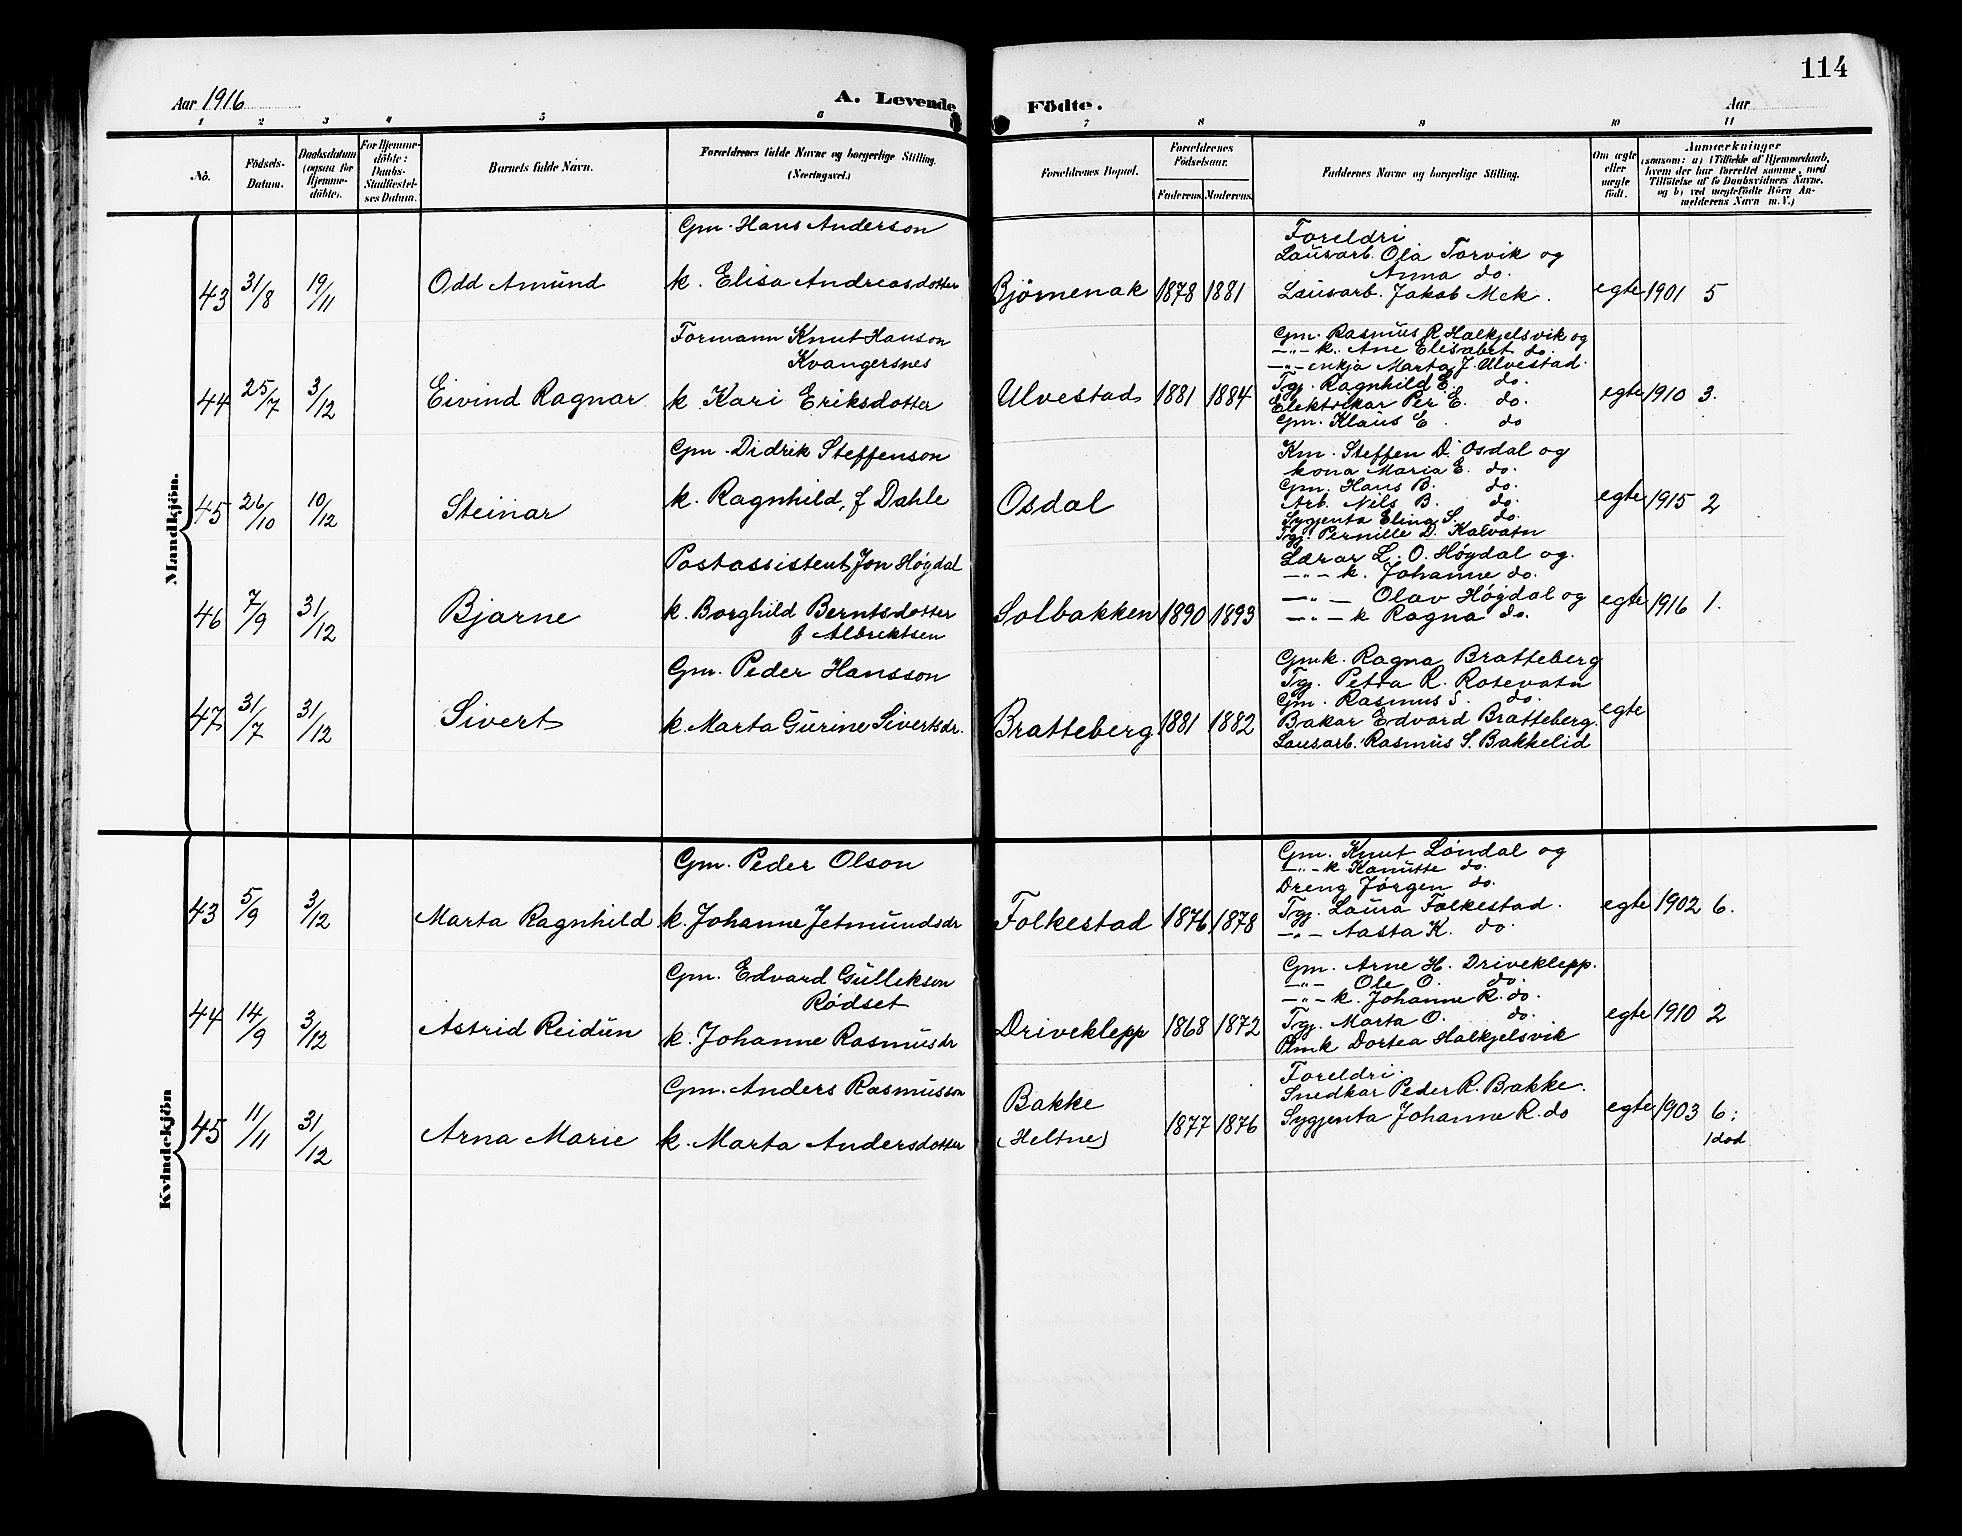 114
Aar 1916
A. Levende Födte.
Aar
1 2 3 4 5 6 7 8 9 10 11
No.
Födsels-
Datum.
Daabsdatum
(ogsaa for
Hjemme-
döbte).
For Hjemme-
döbte:
Daabs-
Stadfæstel-
ses Datum.
Barnets fulde Navn.
Forældrenes fulde Navne og borgerlige Stilling.
(Næringsvei.)
Forældrenes Bopæl.
Forældrenes
Födselsaar.
Faderens. Moderens.
Faddernes Navne og borgerlige Stilling.
Om ægte
eller
uægte
födt.
Anmærkninger
(saasom: a) i Tilfælde af Hjemmedaab,
hvem der har forrettet samme, med
Tilföielse af to Daabsvidners Navne,
og b) ved uægtefödte Börn An-
melderens Navn m. V.)
Mandkjön.
43 31/8 19/11 Odd Amund
Gm. Hans Anderson
k. Elisa Andreasdotter
Bjørnenak 1878 1881
Foreldri
Lausarb. Ola Torvik og
Anna do.
Lausarb. Jakob Mek.
egte 1901 5
44 25/7 3/12 Eivind Ragnar
Formann Knut Hanson
Kvangersnes
k. Kari Eriksdotter
Ulvestad 1881 1884
Gm. Rasmus R. Halkjelsvik og
—"— k. Ane Elisabet do.
—"— enkja Marta J. Ulvestad.
Tgj. Ragnhild E. do.
Elektrikar Per E. do.
Gm. Klaus E. do
egte 1910 3.
45 26/10 10/12 Steinar
Gm. Didrik Steffenson
k. Ragnhild, f Dahle
Osdal
Km. Steffen D. Osdal og
kona Maria E. do.
Gm. Hans B. do.
Arb. Nils B. do.
Sygjenta Elina S. do.
Tgj. Pernille D. Kalvatn
egte 1915 2
46 7/9 31/12 Bjarne
Postassistent Jon Høgdal
k. Borghild Berntsdotter
f Albrektsen
Solbakken 1890 1893
Lærar L. O. Høgdal og.
—"— k. Johanne do.
—"— Olav Høgdal og
—"— k Ragna do.
egte 1916 1.
47 31/7 31/12 Sivert
Gm. Peder Hansson
k. Marta Gurine Sivertsdr.
Bratteberg 1881 1882
Gmk. Ragna Bratteberg
Tgj. Petra R. Rotevatn
Gm. Rasmus S. do.
Bakar Edvard Bratteberg.
Lausarb. Rasmus S. Bakkelid
egte
Kvindekjön
43 5/9 3/12 Marta Ragnhild
Gm. Peder Olson
k. Johanne Jetmundsdr
Folkestad 1876 1878
Gm. Knut Løndal og
—"— k. Kanutte do.
Dreng Jørgen do.
Tgj. Laura Folkestad.
—"— Aasta K. do.
egte 1902 6.
44 14/9 3/12 Astrid Reidun
Gm. Edvard Gullikson
Rødset
k. Johanne Rasmusdr
Driveklepp 1868 1872
Gm. Arne H. Driveklepp.
—"— Ole O. do.
—"— k. Johanne R. do.
Tgj. Marta O. do.
Plmk Dortea Halkjelsvik
egte 1910 2
45 11/11 31/12 Arna Marie
Gm. Anders Rasmusson
k. Marta Andersdotter
Bakke
(Heltne) 1877 1876
Foreldri.
Snedkar Peder R. Bakke.
Sygjenta Johanne R. do
egte 1903 6;
1 død